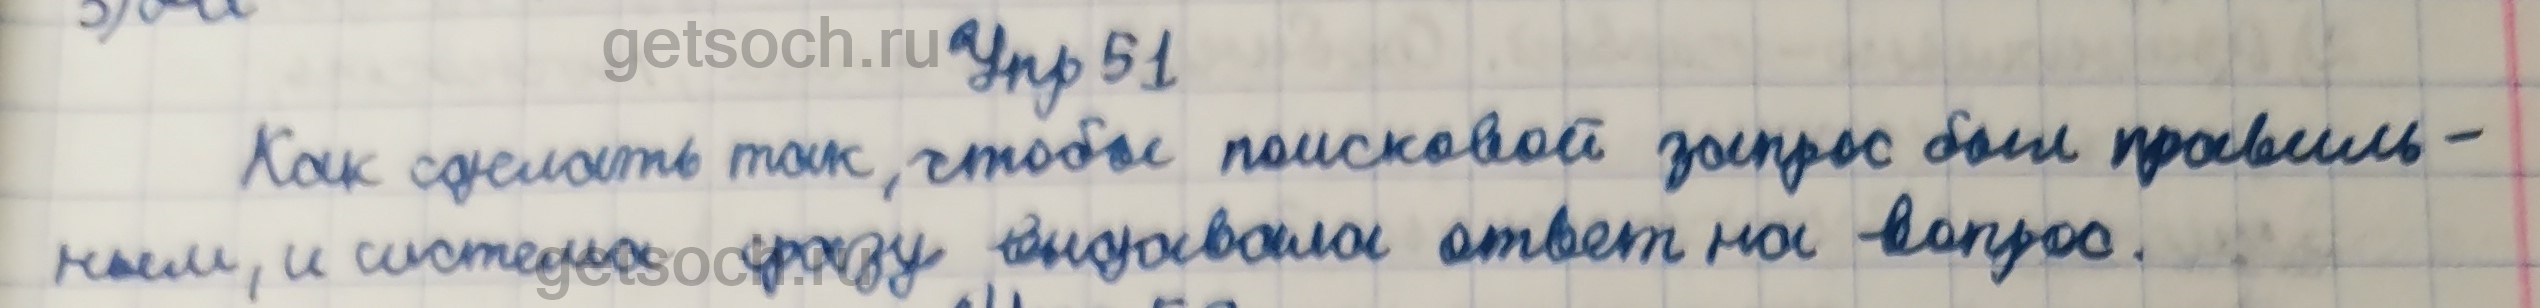 getsoch.ru
Упр 51
Как сделать так, чтобы поисковой запрос был правиль-
ным, и система сразу выдавала ответ на вопрос.
getsoch.ru